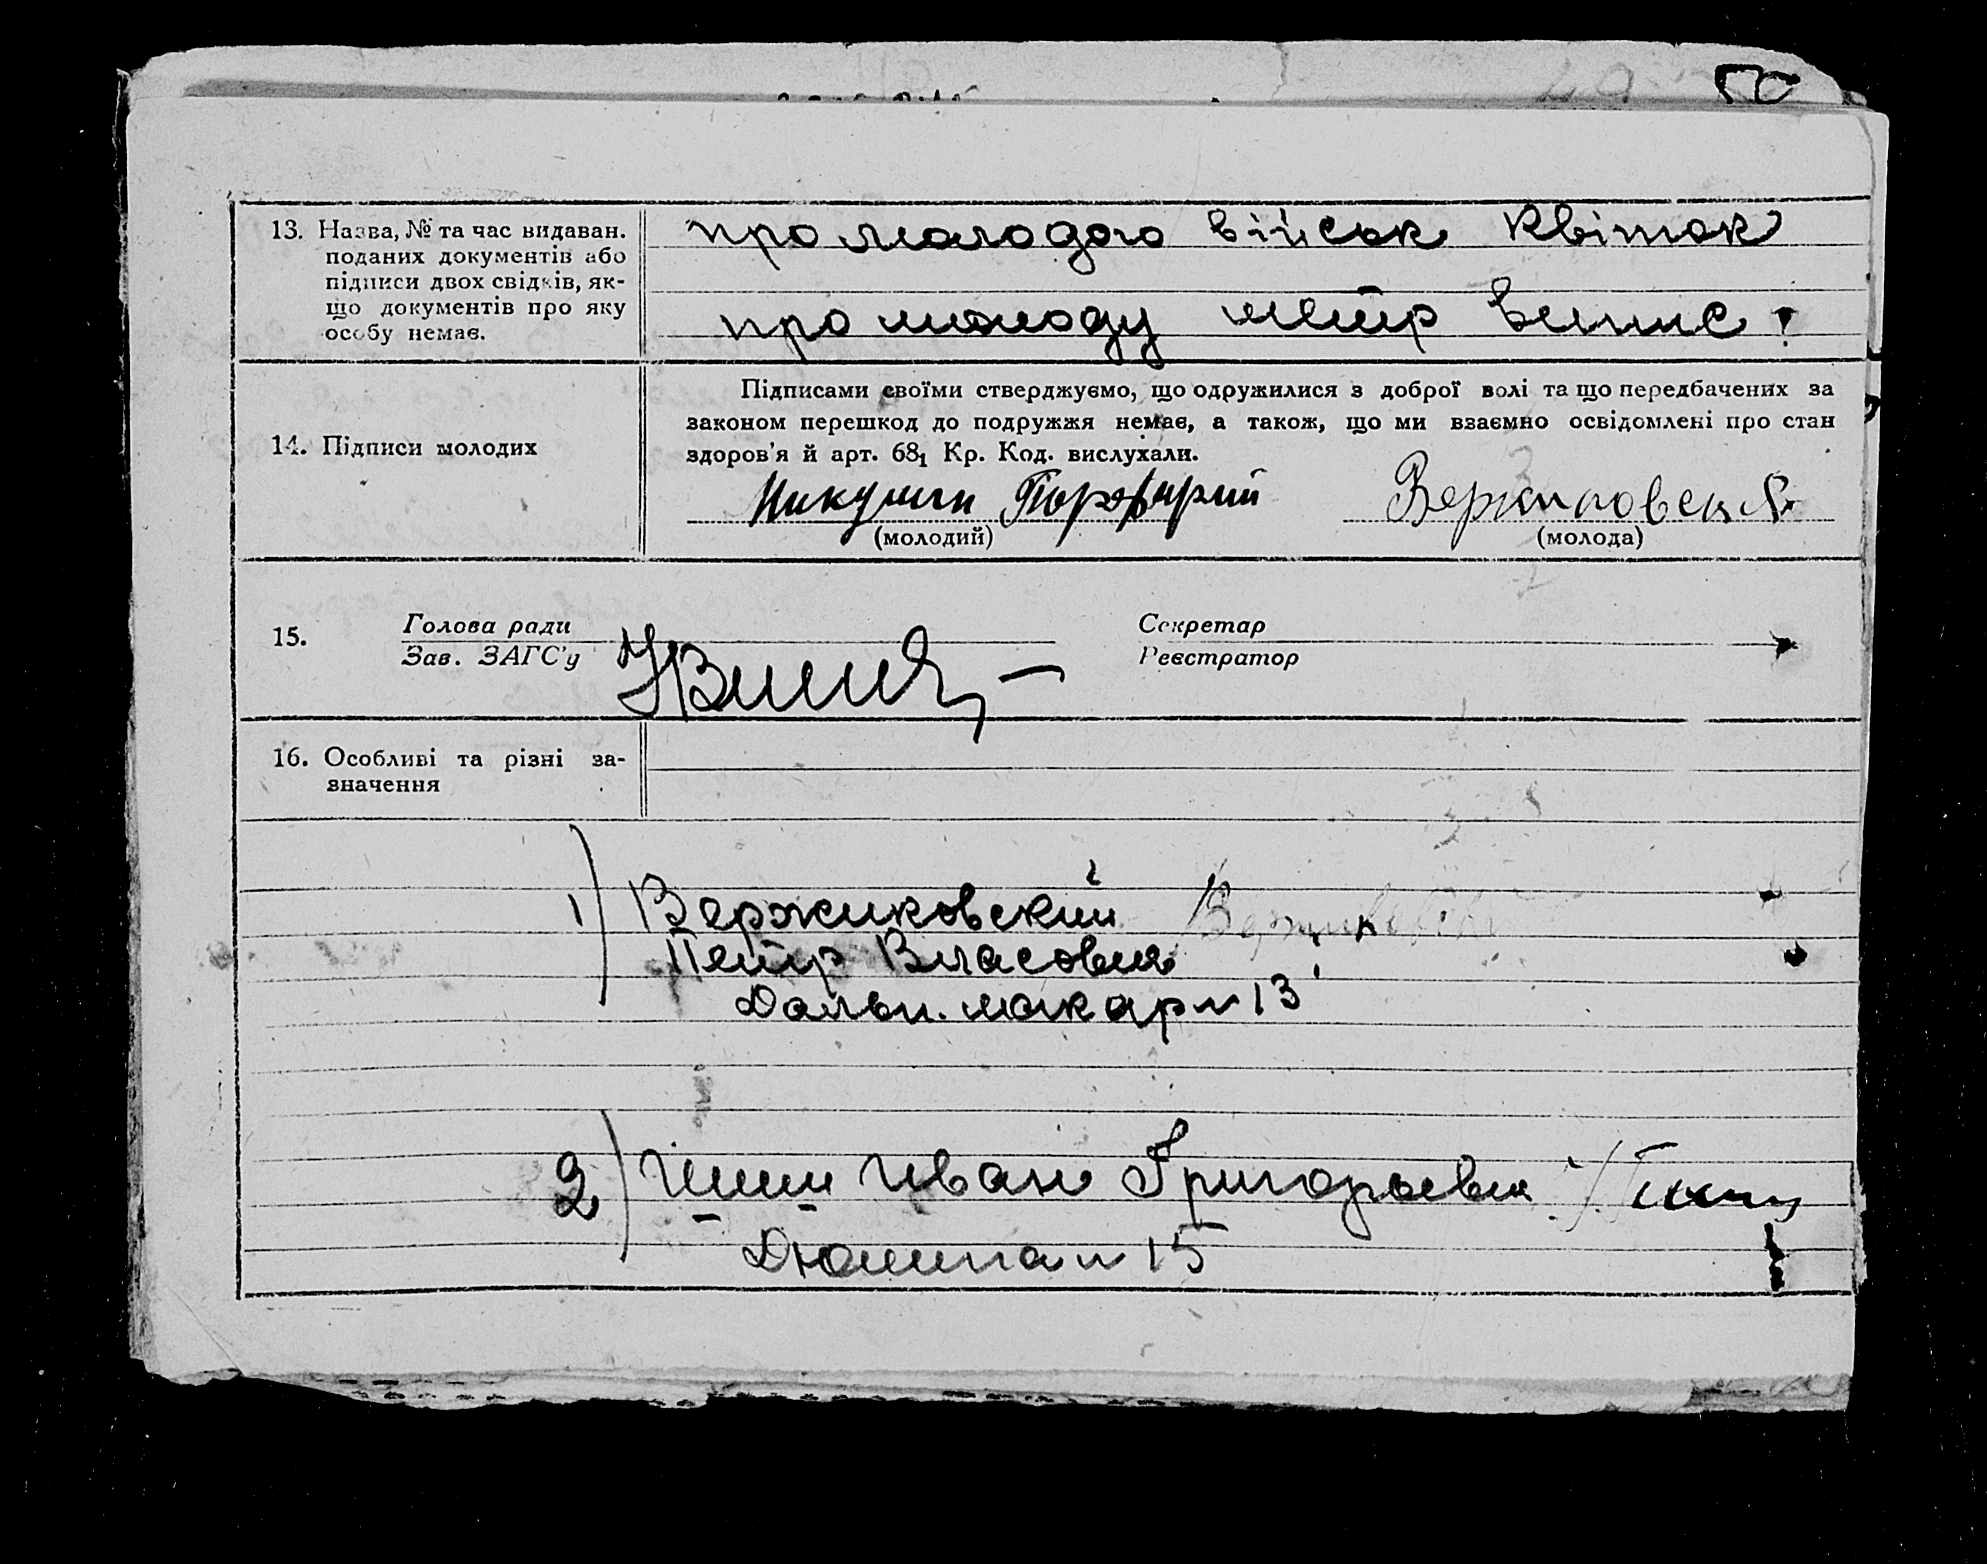 50
13. Назва, № та час видаван.
поданих документів або
підписи двох свідків, як-
що документів про яку
особу немає.
про молодого військ квіток
про молоду метр випис
14. Підписи молодих
Підписами своїми стверджуємо, що одружилися з доброї волі та що передбачених за
законом перешкод до подружжя немає, а також, що ми взаємно освідомлені про стан
здоров'я й арт. 68₁ Кр. Код. вислухали.
Порфирий
(молодий)
(молода)
15.
Голова ради
Зав. ЗАГС'у
Секретар
Реєстратор
16. Особливі та різні за-
значення
1) Вержиковский
Петр Власович
Дальн. макар 13
2) Иван Григорьевич
Дюшина 15